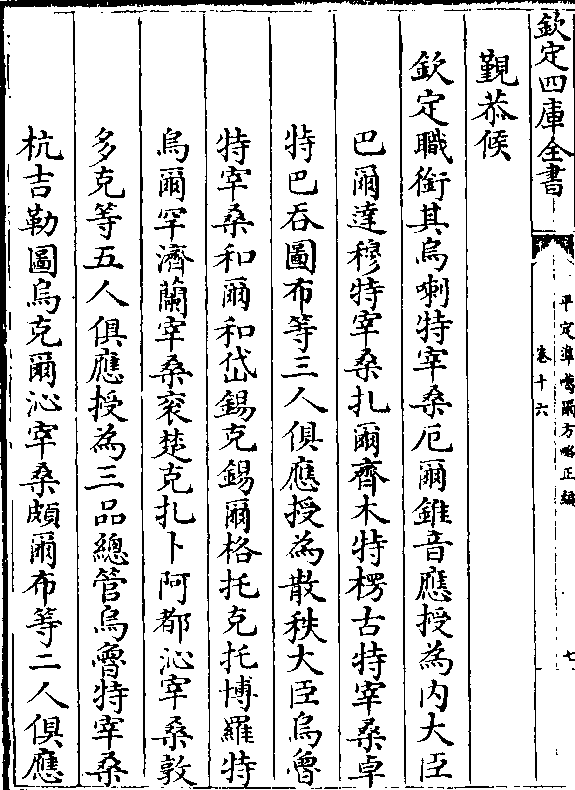 欽定四庫全書
平定準噶爾方略正編
卷十六
七
覲恭候
欽定職銜其烏喇特宰桑厄爾錐音應授為内大臣
巴爾達穆特宰桑扎爾齊木特楞古特宰桑卓
特巴吞圖布等三人俱應授為散秩大臣烏魯
特宰桑和爾和岱錫克錫爾格托克托博羅特
烏爾罕濟蘭宰桑衮楚克扎卜阿都沁宰桑敦
多克等五人俱應授為三品總管烏魯特宰桑
杭吉勒圖烏克爾沁宰桑頗爾布等二人俱應